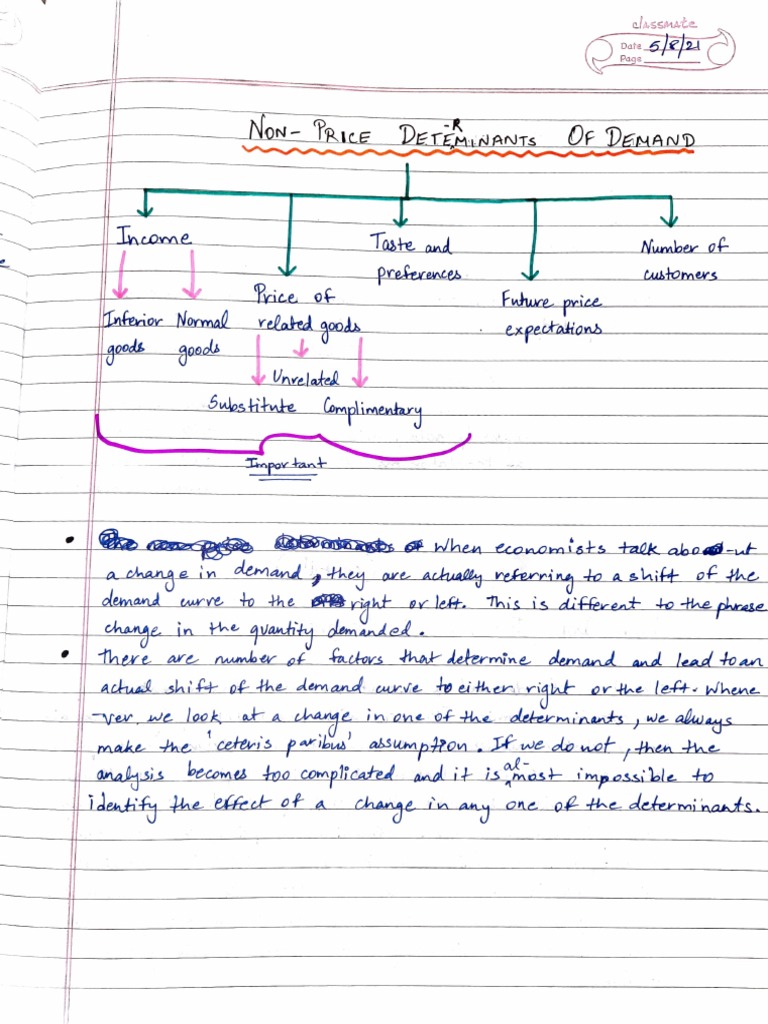 classmate
Date 5/8/21
Page
NON-PRICE DETERMINANTS OF DEMAND
Income
Taste and preferences
Number of customers
Price of related goods
Future price expectations
Inferior goods
Normal goods
Unrelated
Substitute Complimentary
Important
• When economists talk about
a change in demand, they are actually referring to a shift of the
demand curve to the right or left. This is different to the phrase
change in the quantity demanded.
• There are number of factors that determine demand and lead to an
actual shift of the demand curve to either right or the left. Whene
-ver, we look at a change in one of the determinants, we always
make the 'ceteris paribus' assumption. If we do not, then the
analysis becomes too complicated and it is al-most impossible to
identify the effect of a change in any one of the determinants.